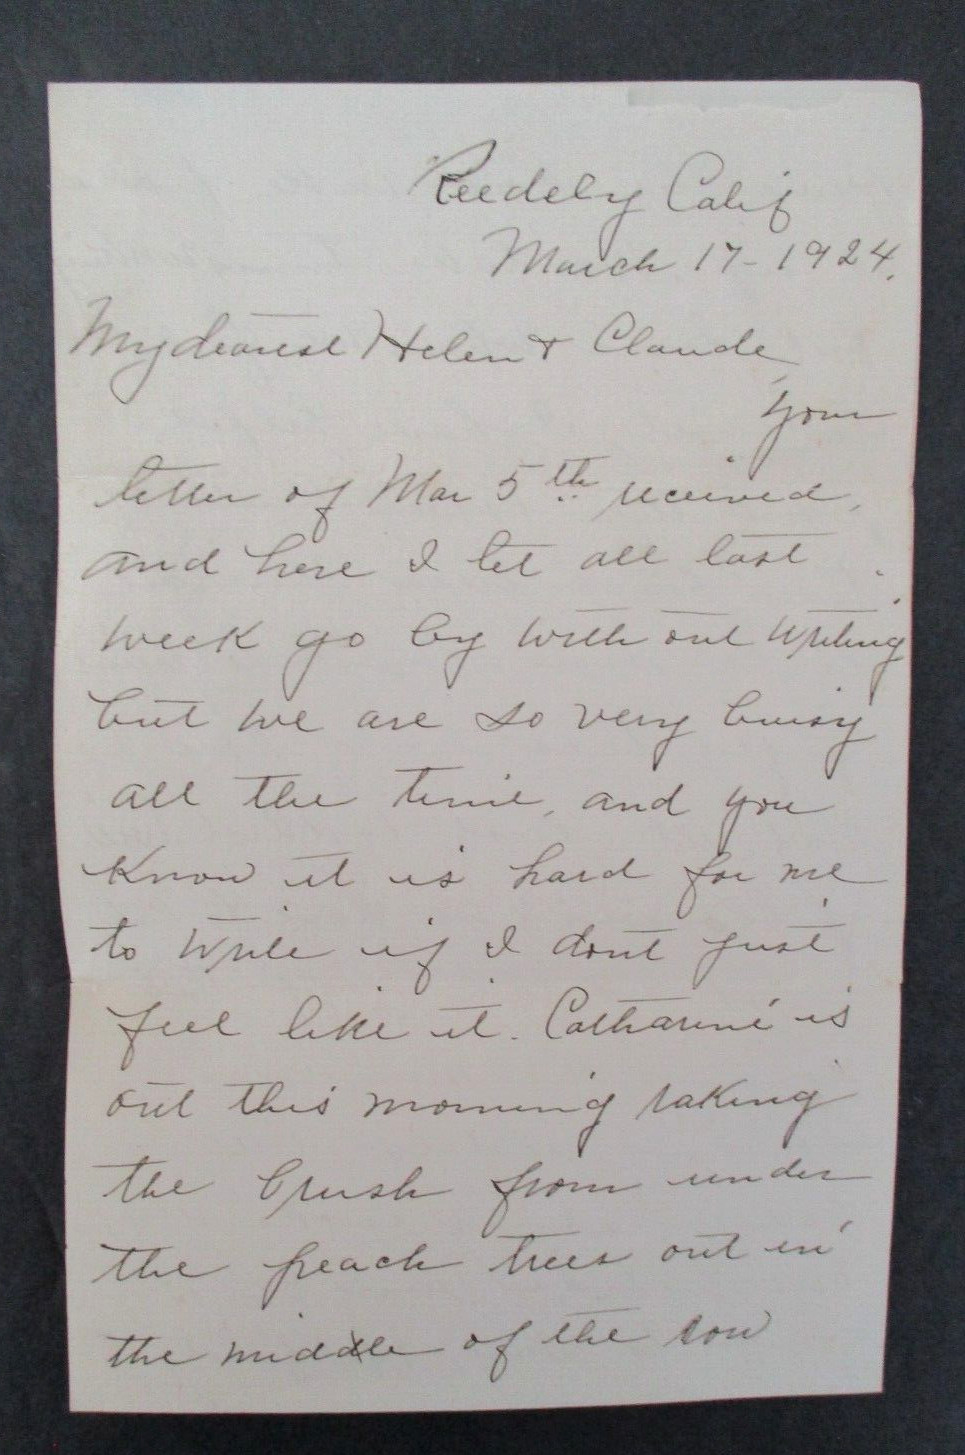 Reedely Calif
March 17-1924.
My dearest Helen & Claude
Your
letter of Mar 5th received,
and here I let all last
week go by with out writing
but we are so very buisy
all the time, and you
know it is hard for me
to write if I dont just
feel like it. Catharine is
out this morning raking
the brush from under
the peach trees out in
the middle of the row